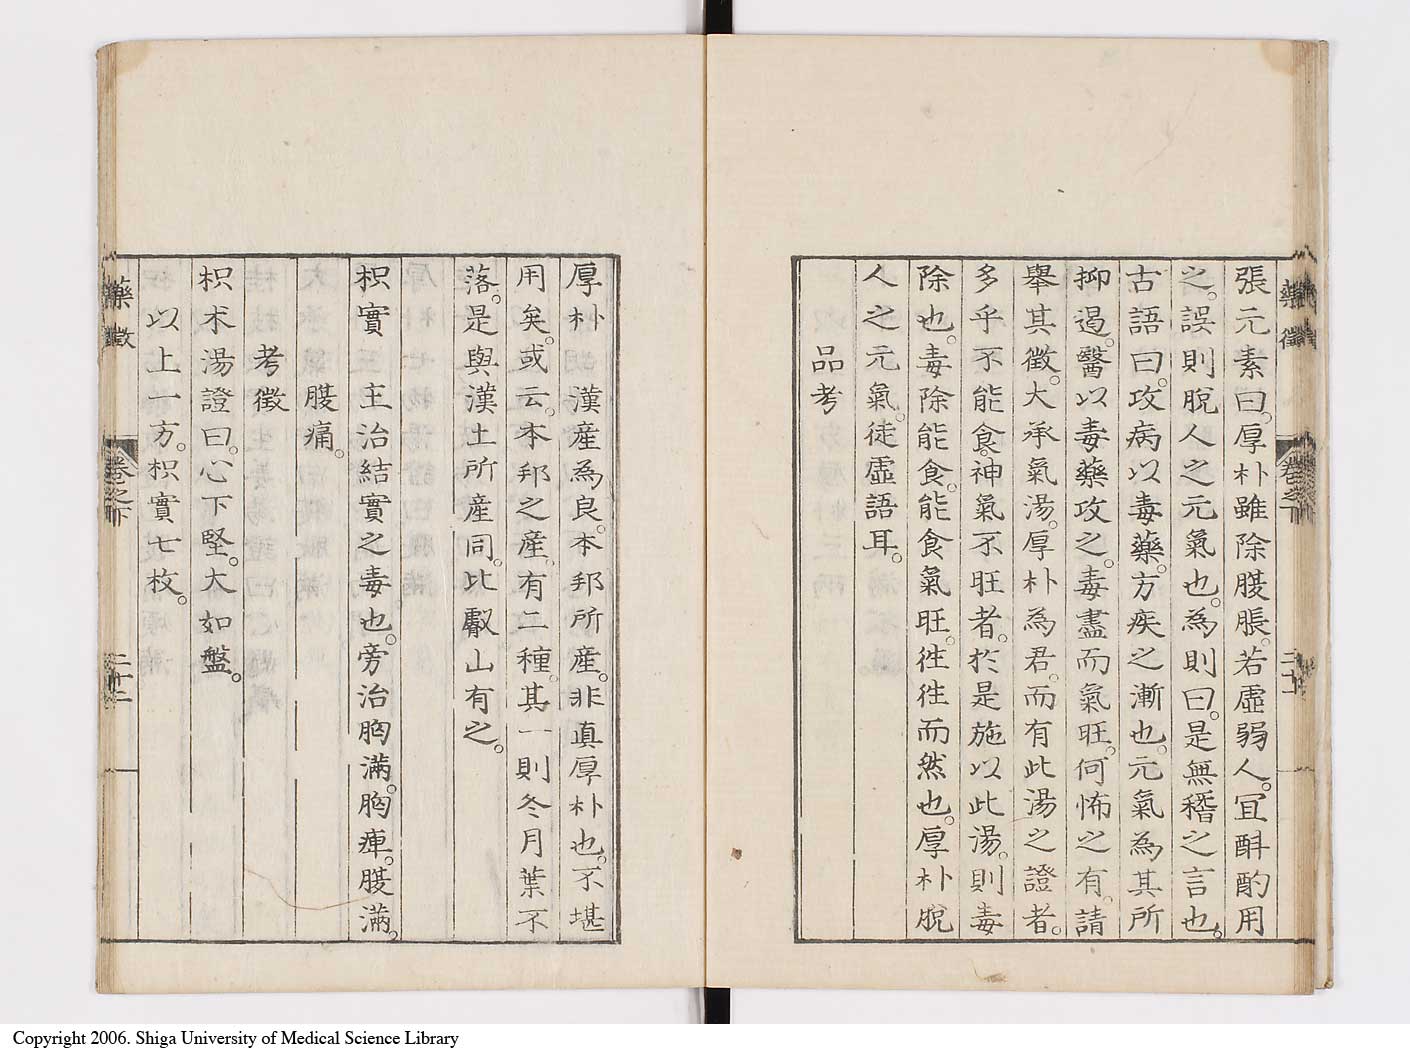 張元素曰。厚朴雖除腹脹。若虛弱人。宜斟酌用
之。誤則脫人之元氣也。為則曰。是無稽之言也。
古語曰。攻病以毒藥。方疾之漸也。元氣為其所
抑遏。醫以毒藥攻之。毒盡而氣旺。何怖之有。請
舉其徵。大承氣湯。厚朴為君。而有此湯之證者。
多乎不能食。神氣不旺者。於是施以此湯。則毒
除也。毒除能食。能食氣旺。往往而然也。厚朴脫
人之元氣。徒虛語耳。
品考
厚朴 漢產為良。本邦所產。非真厚朴也。不堪
用矣。或云。本邦之產。有二種。其一則冬月葉不
落。是與漢土所產同。比叡山有之。
枳實 主治結實之毒也。旁治胸滿。胸痺。腹滿。
腹痛。
考徵
枳朮湯證曰。心下堅。大如盤。
以上一方。枳實七枚。
藥徵 卷之下 二十二
Copyright 2006. Shiga University of Medical Science Library